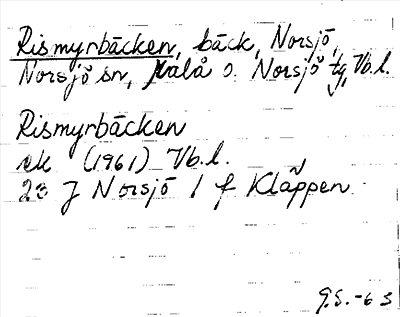 Rismyrbäcken, bäck, Norsjö,
Norsjö sn, Malå o. Norsjö tg, Vb.l.
Rismyrbäcken
ek (1961) Vb.l.
23 J Norsjö 1 f Kläppen
G.S.-63